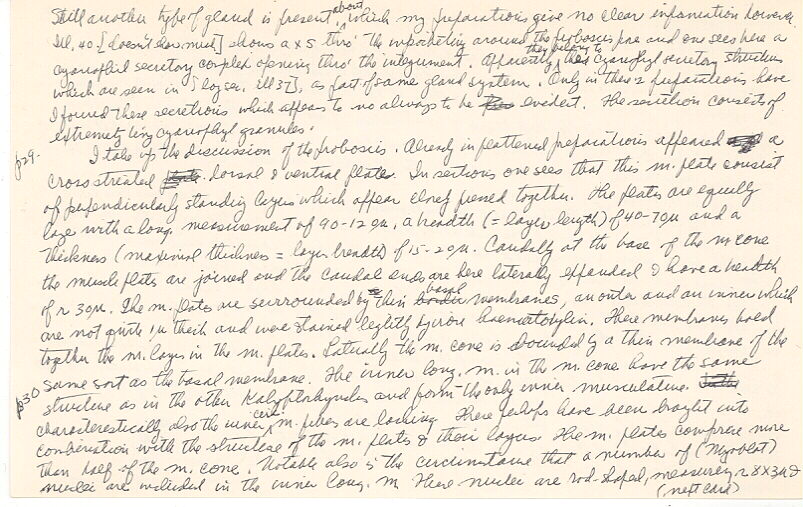 Still another type of gland is present about which my preparations give no clear information however.
Ill. 40 [doesn't show much] shows a x s thro' the in around the proboscis pore and one sees here a
cyanophil secretory complex opening thro' the integument. Apparently they belong to the cyanophyl secretory structures
which are seen in [ , ill 37], as part of same gland system. Only in these 2 preparations have
I found these secretions which appears to no always to be evident. The secretion consists of
extremely tiny cyanophyl granules.
p29. I take up the discussion of the proboscis. Already in flattened preparations appeared a
cross striated dorsal & ventral plates. In sections one sees that this m. plate consist
of perpendicularly standing layers which appear closely pressed together. The plates are equally
large with a long. measurement of 90-120µ, a breadth (= layer length) of 40-70µ and a
thickness (maximal thickness = layer breadth) of 15-20µ. Caudally at the base of the m cone
the muscle plates are joined and the caudal ends are here laterally expanded & have a breadth
of ± 30µ. The m. plates are surrounded by thin basal membranes, an outer and an inner which
are not quite 1µ thick and were stained lightly by iron haematoxylin. These membranes hold
together the m. layers in the m. plates. Laterally the m. cone is bounded by a thin membrane of the
same sort as the basal membrane. The inner long. m. in the m. cone have the same
p30 structure as in the other Kalyptorhynchs and form the only inner musculature.
characteristically also the inner circ m. fibres are lacking. These perhaps have been brought into
combination with the structure of the m. plates & their layers. The m. plates comprise more
than half of the m. cone. Notable also is the circumstance that a number of (Myoblast)
nuclei are included in the inner long. m. These nuclei are rod-shaped, measurely ± 8x3µ &
(next card)